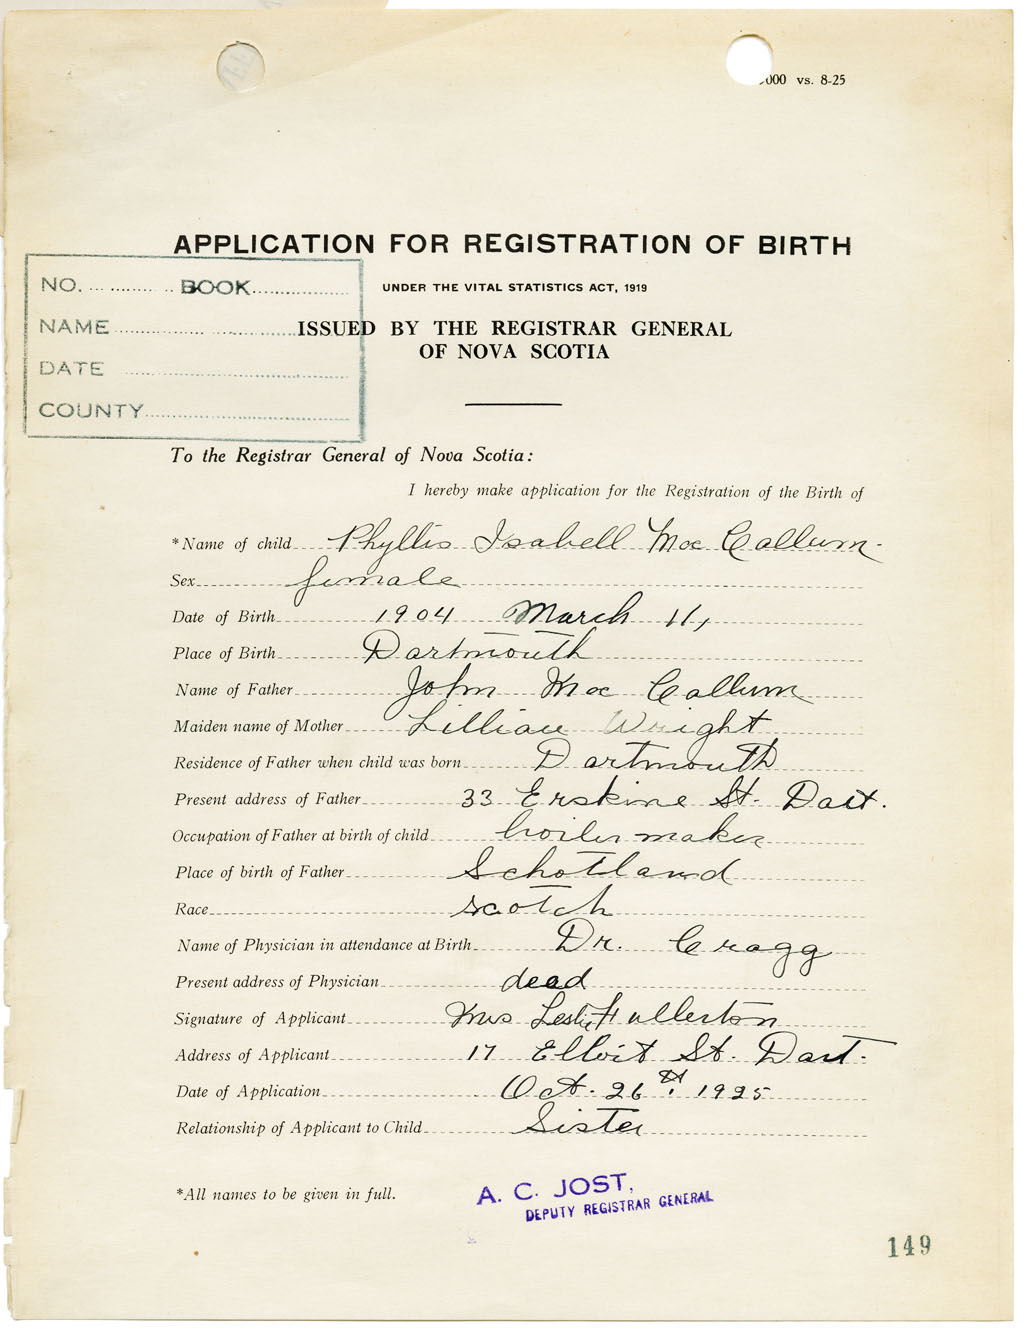 000 vs. 8-25
APPLICATION FOR REGISTRATION OF BIRTH
UNDER THE VITAL STATISTICS ACT, 1919
ISSUED BY THE REGISTRAR GENERAL
OF NOVA SCOTIA
NO. BOOK
NAME
DATE
COUNTY
To the Registrar General of Nova Scotia:
I hereby make application for the Registration of the Birth of
*Name of child Phyllis Isabell Mac Callum
Sex female
Date of Birth 1904 March 11,
Place of Birth Dartmouth
Name of Father John Mac Callum
Maiden name of Mother Lillian Wright
Residence of Father when child was born Dartmouth
Present address of Father 33 Erskine St. Dart.
Occupation of Father at birth of child boiler maker
Place of birth of Father Schotland
Race scotch
Name of Physician in attendance at Birth Dr. Cragg
Present address of Physician dead
Signature of Applicant Mrs Leslie Fullerton
Address of Applicant 17 Elloit St. Dart.
Date of Application Oct. 26th 1925
Relationship of Applicant to Child Sister
*All names to be given in full.
A. C. JOST,
DEPUTY REGISTRAR GENERAL
149